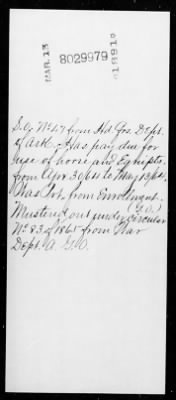 MAR. 13
8029979
1891
S.O. No 47 from Hd Qrs. Dept.
of Ark. Has pay due for
use of horse and Equipts.
from Apr. 30/64 to May 13/64.
Was Sgt. from Enrollment.
Mustered out under Circular (G.O.)
No 83 of 1865 from War
Dept. A.G.O.